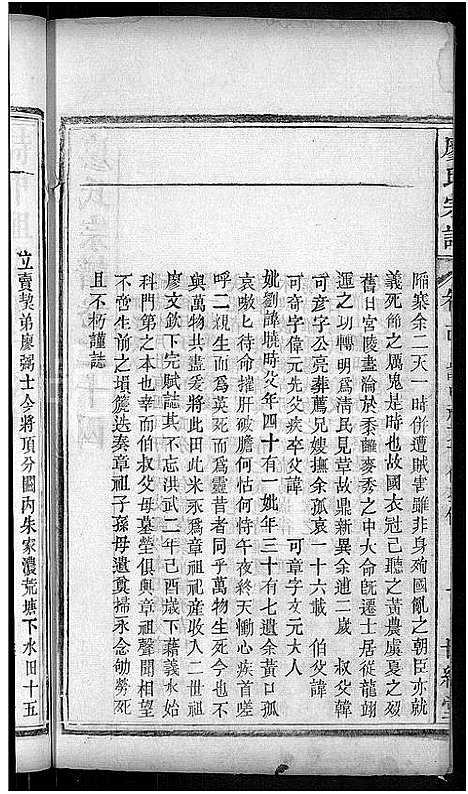 廖氏宗譜
隔寒余二天一時併遭賊害雖非身殉國亂之朝臣亦就
義死節之厲鬼是時也故國衣冠己聽之黃農虞夏之歿
舊日宮陵盡淪於黍離麥秀之中大命既遷士居從龍翊
運之功轉明為清民見草故鼎新異余逋二歲 叔父諱
可彥字公亮葬薦兄嫂撫余孤哀一十六載 伯父諱
可奇字偉元先父字 可章字文元大人
妣劉諱曉時父年四十有一妣年三十有七遺余黃口孤
哀嗷匕待命摧肝破膽何怙何恃午夜終天慟心疾首嗟
呼二親生而為英死而為靈昔者同乎萬物生死今也不
與萬物共盡爰將此田此米永爲章祖祀產收入二世祖
廖文欽下完賦誌其不忘洪武二年己酉歲下藉義水始
科門第之本也幸而伯叔父母墓塋俱與章祖聲聞相望
不啻生前之塤篪迭奏章祖子孫毋遺奠掃永念劬勞死
且不朽謹誌
立賣契弟廖弼士今將頂分關內朱家濃荒塘下水田十五